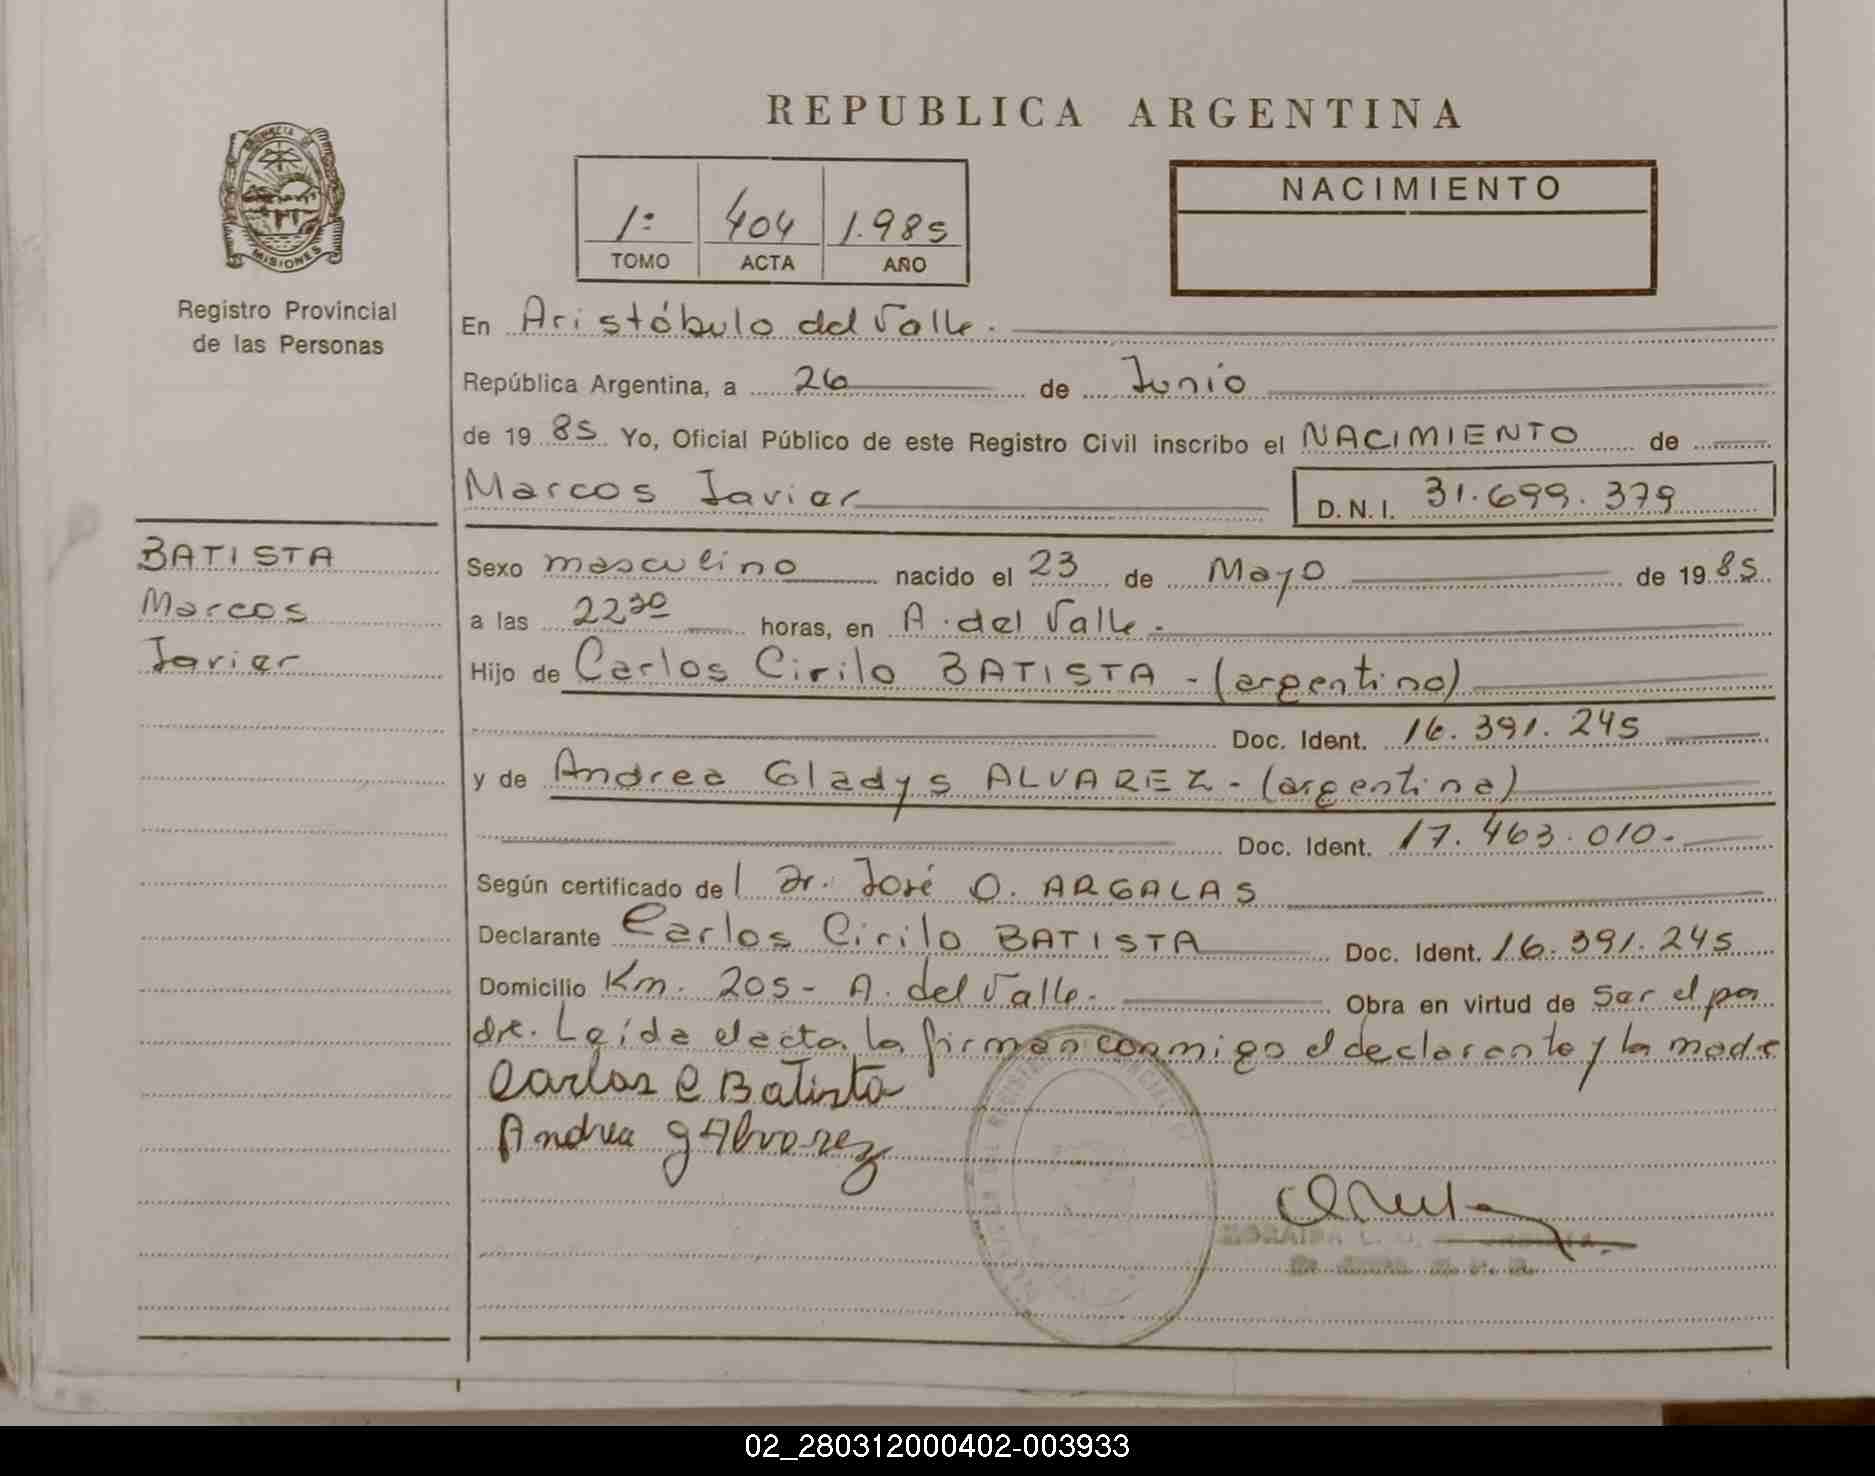 REPUBLICA ARGENTINA
PROVINCIA DE
MISIONES
Registro Provincial
de las Personas
1º 404 1.985
TOMO ACTA AÑO
NACIMIENTO
En Aristóbulo del Valle.
República Argentina, a 26 de Junio
de 19 85 Yo, Oficial Público de este Registro Civil inscribo el NACIMIENTO de
Marcos Javier D.N.I. 31.699.379
BATISTA
Marcos
Javier
Sexo masculino nacido el 23 de Mayo de 19 85
a las 22 30 horas, en A. del Valle.
Hijo de Carlos Cirilo BATISTA - (argentino)
Doc. Ident. 16.391.245
y de Andrea Gladys ALVAREZ - (argentina)
Doc. Ident. 17.463.010.-
Según certificado de l Dr. José O. ARGALAS
Declarante Carlos Cirilo BATISTA Doc. Ident. 16.391.245
Domicilio Km. 205 - A. del Valle. Obra en virtud de ser el pa
dre. Leída el acta, la firman conmigo el declarante y la madre
Carlos C Batista
Andrea G Alvarez
02_280312000402-003933